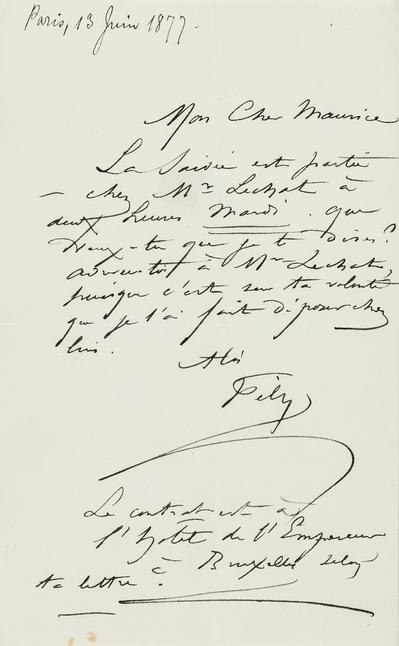 Paris, 13 Juin 1877.
Mon Cher Maurice
La Saisie est partie
— chez Mr Lechat à
deux heures mardi. que
veux-tu que je te dises?
à Mr Lechat,
puisque c'est sur ta volonté
que je l'ai fait déposer chez
lui.
Fély
Le contrat est à
l'hotel de l'Empereur
à Bruxelles selon
ta lettre.